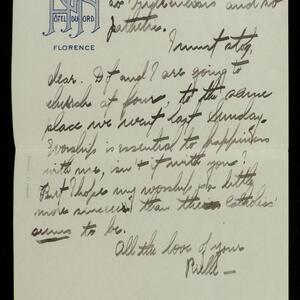 HÔTEL DU NORD
FLORENCE
for frighteners and no
pathetic.
I must stop,
dear. D. F and I are going to
church at four, to the same
place we went last Sunday.
Worship is essential to happiness
with me, isn't it with you?
But I hope my worship is a little
more sincere than the Catholics'
seems to be.
All the love of yours
Belle —